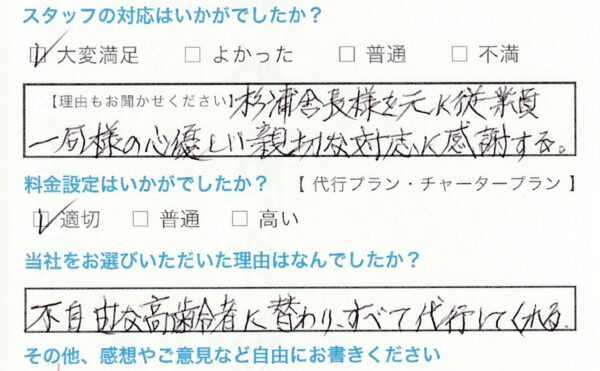 スタッフの対応はいかがでしたか？
☑ 大変満足 □ よかった □ 普通 □ 不満
【理由もお聞かせください】杉浦舎長様を元に従業員
一同様の心優しい親切な対応に感謝する。
料金設定はいかがでしたか？ 【 代行プラン・チャータープラン 】
☑ 適切 □ 普通 □ 高い
当社をお選びいただいた理由はなんでしたか？
不自由な高齢者に替わり、すべて代行してくれる。
その他、感想やご意見など自由にお書きください